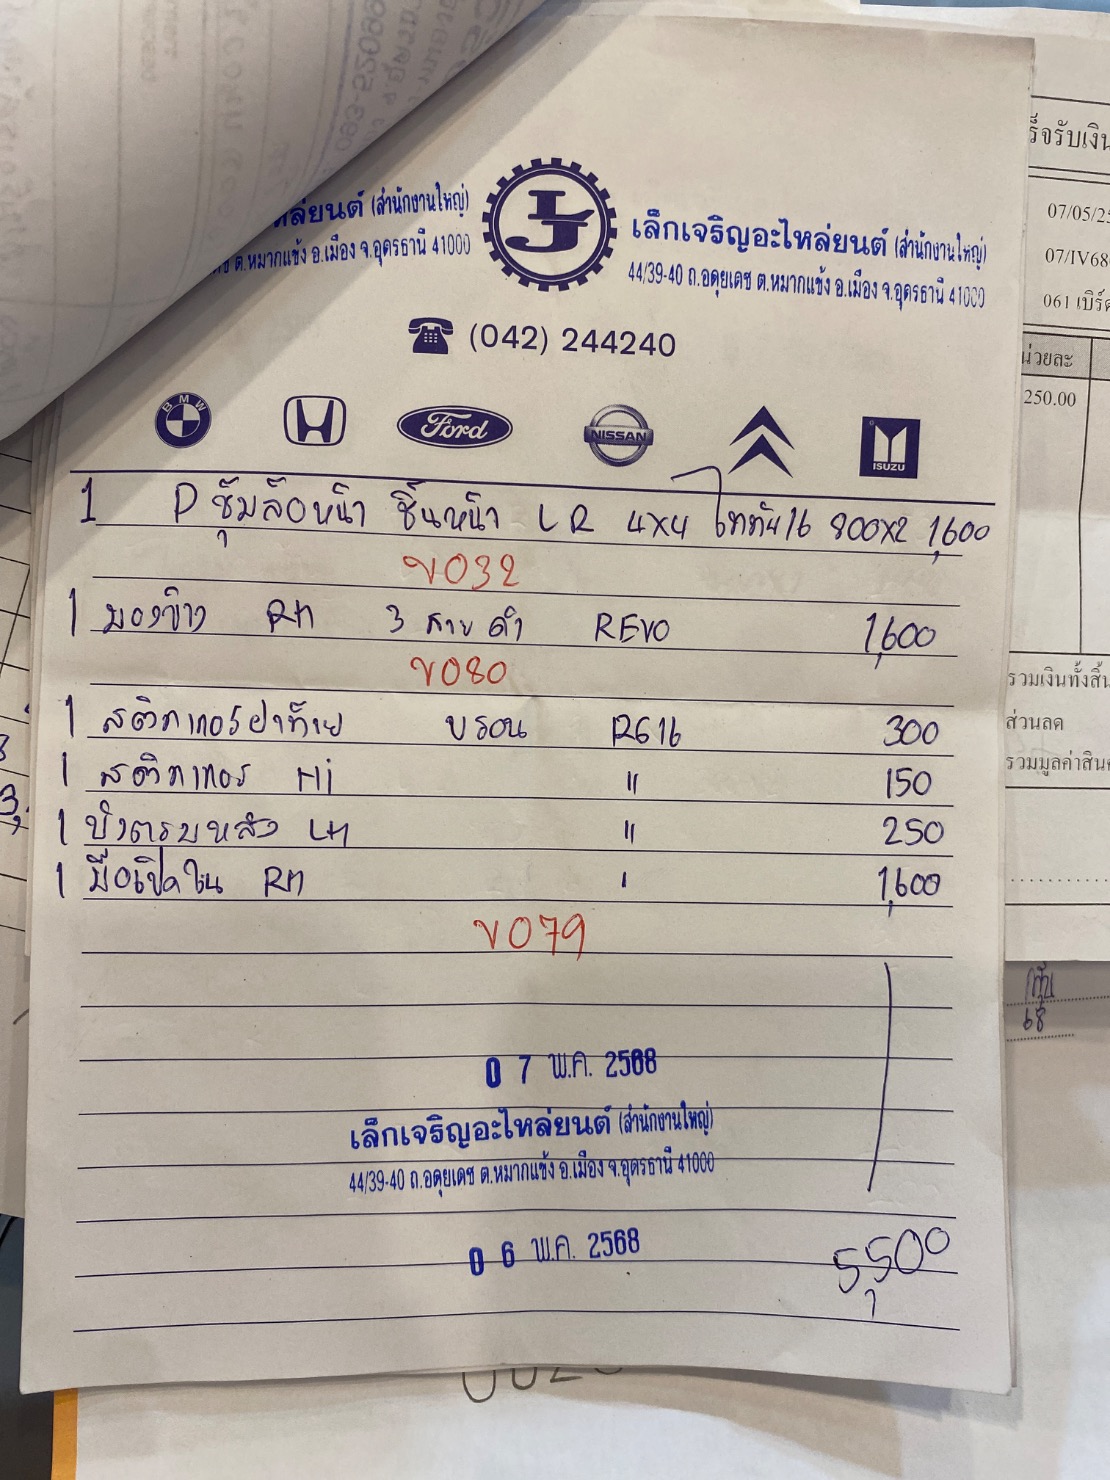 หล่ยนต์ (สำนักงานใหญ่)
ต.หมากแข้ง อ.เมือง จ.อุดรธานี 41000
LJ
เล็กเจริญอะไหล่ยนต์ (สำนักงานใหญ่)
44/39-40 ถ.อดุยเดช ต.หมากแข้ง อ.เมือง จ.อุดรธานี 41000
(042) 244240
BMW
Ford
NISSAN
ISUZU
1 P ซุ้มล้อหน้า ชิ้นหน้า LR 4x4 ไททัน16 800x2 1,600
ข032
1 มองข้าง RH 3 สาย ดำ REVO 1,600
ข080
1 สติกเกอร์ฝาท้าย บรอน RG16 300
1 สติกเกอร์ Hi " 150
1 บังตรมหลัง LH " 250
1 มือเปิดใน RH ' 1,600
ข079
07 พ.ค. 2568
เล็กเจริญอะไหล่ยนต์ (สำนักงานใหญ่)
44/39-40 ถ.อดุยเดช ต.หมากแข้ง อ.เมือง จ.อุดรธานี 41000
06 พ.ค. 2568
5,500
ร็จรับเงิน
07/05/25
07/IV68
061 เบิร์ด
น่วยละ
250.00
รวมเงินทั้งสิ้น
ส่วนลด
รวมมูลค่าสินค
68